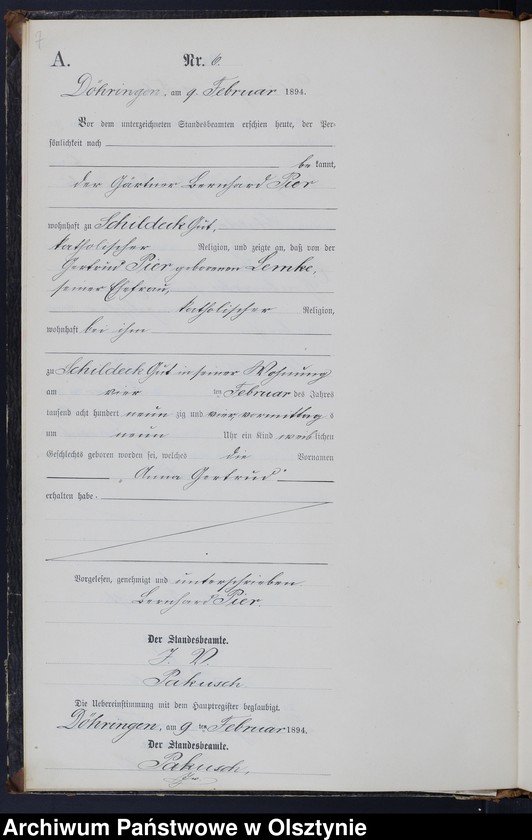 7
A.
Nr. 6.
Döhringen, am 9. Februar 1894.
Vor dem unterzeichneten Standesbeamten erschien heute, der Per-
sönlichkeit nach
be kannt,
der Gärtner Bernhard Pier
wohnhaft zu Schildeck Gut,
katholischer Religion, und zeigte an, daß von der
Gertrud Pier geborenen Lemke,
seiner Ehefrau,
katholischer Religion,
wohnhaft bei ihm
zu Schildeck Gut in seiner Wohnung
am vier ten Februar des Jahres
tausend acht hundert neun zig und vier vormittag s
um neun Uhr ein Kind weiblichen
Geschlechts geboren worden sei, welches die Vornamen
„Anna Gertrud“
erhalten habe.
Vorgelesen, genehmigt und unterschrieben
Bernhard Pier.
Der Standesbeamte.
J. V.
Pakusch
Die Uebereinstimmung mit dem Hauptregister beglaubigt.
Döhringen, am 9 ten Februar 1894.
Der Standesbeamte.
Pakusch,
Archiwum Państwowe w Olsztynie